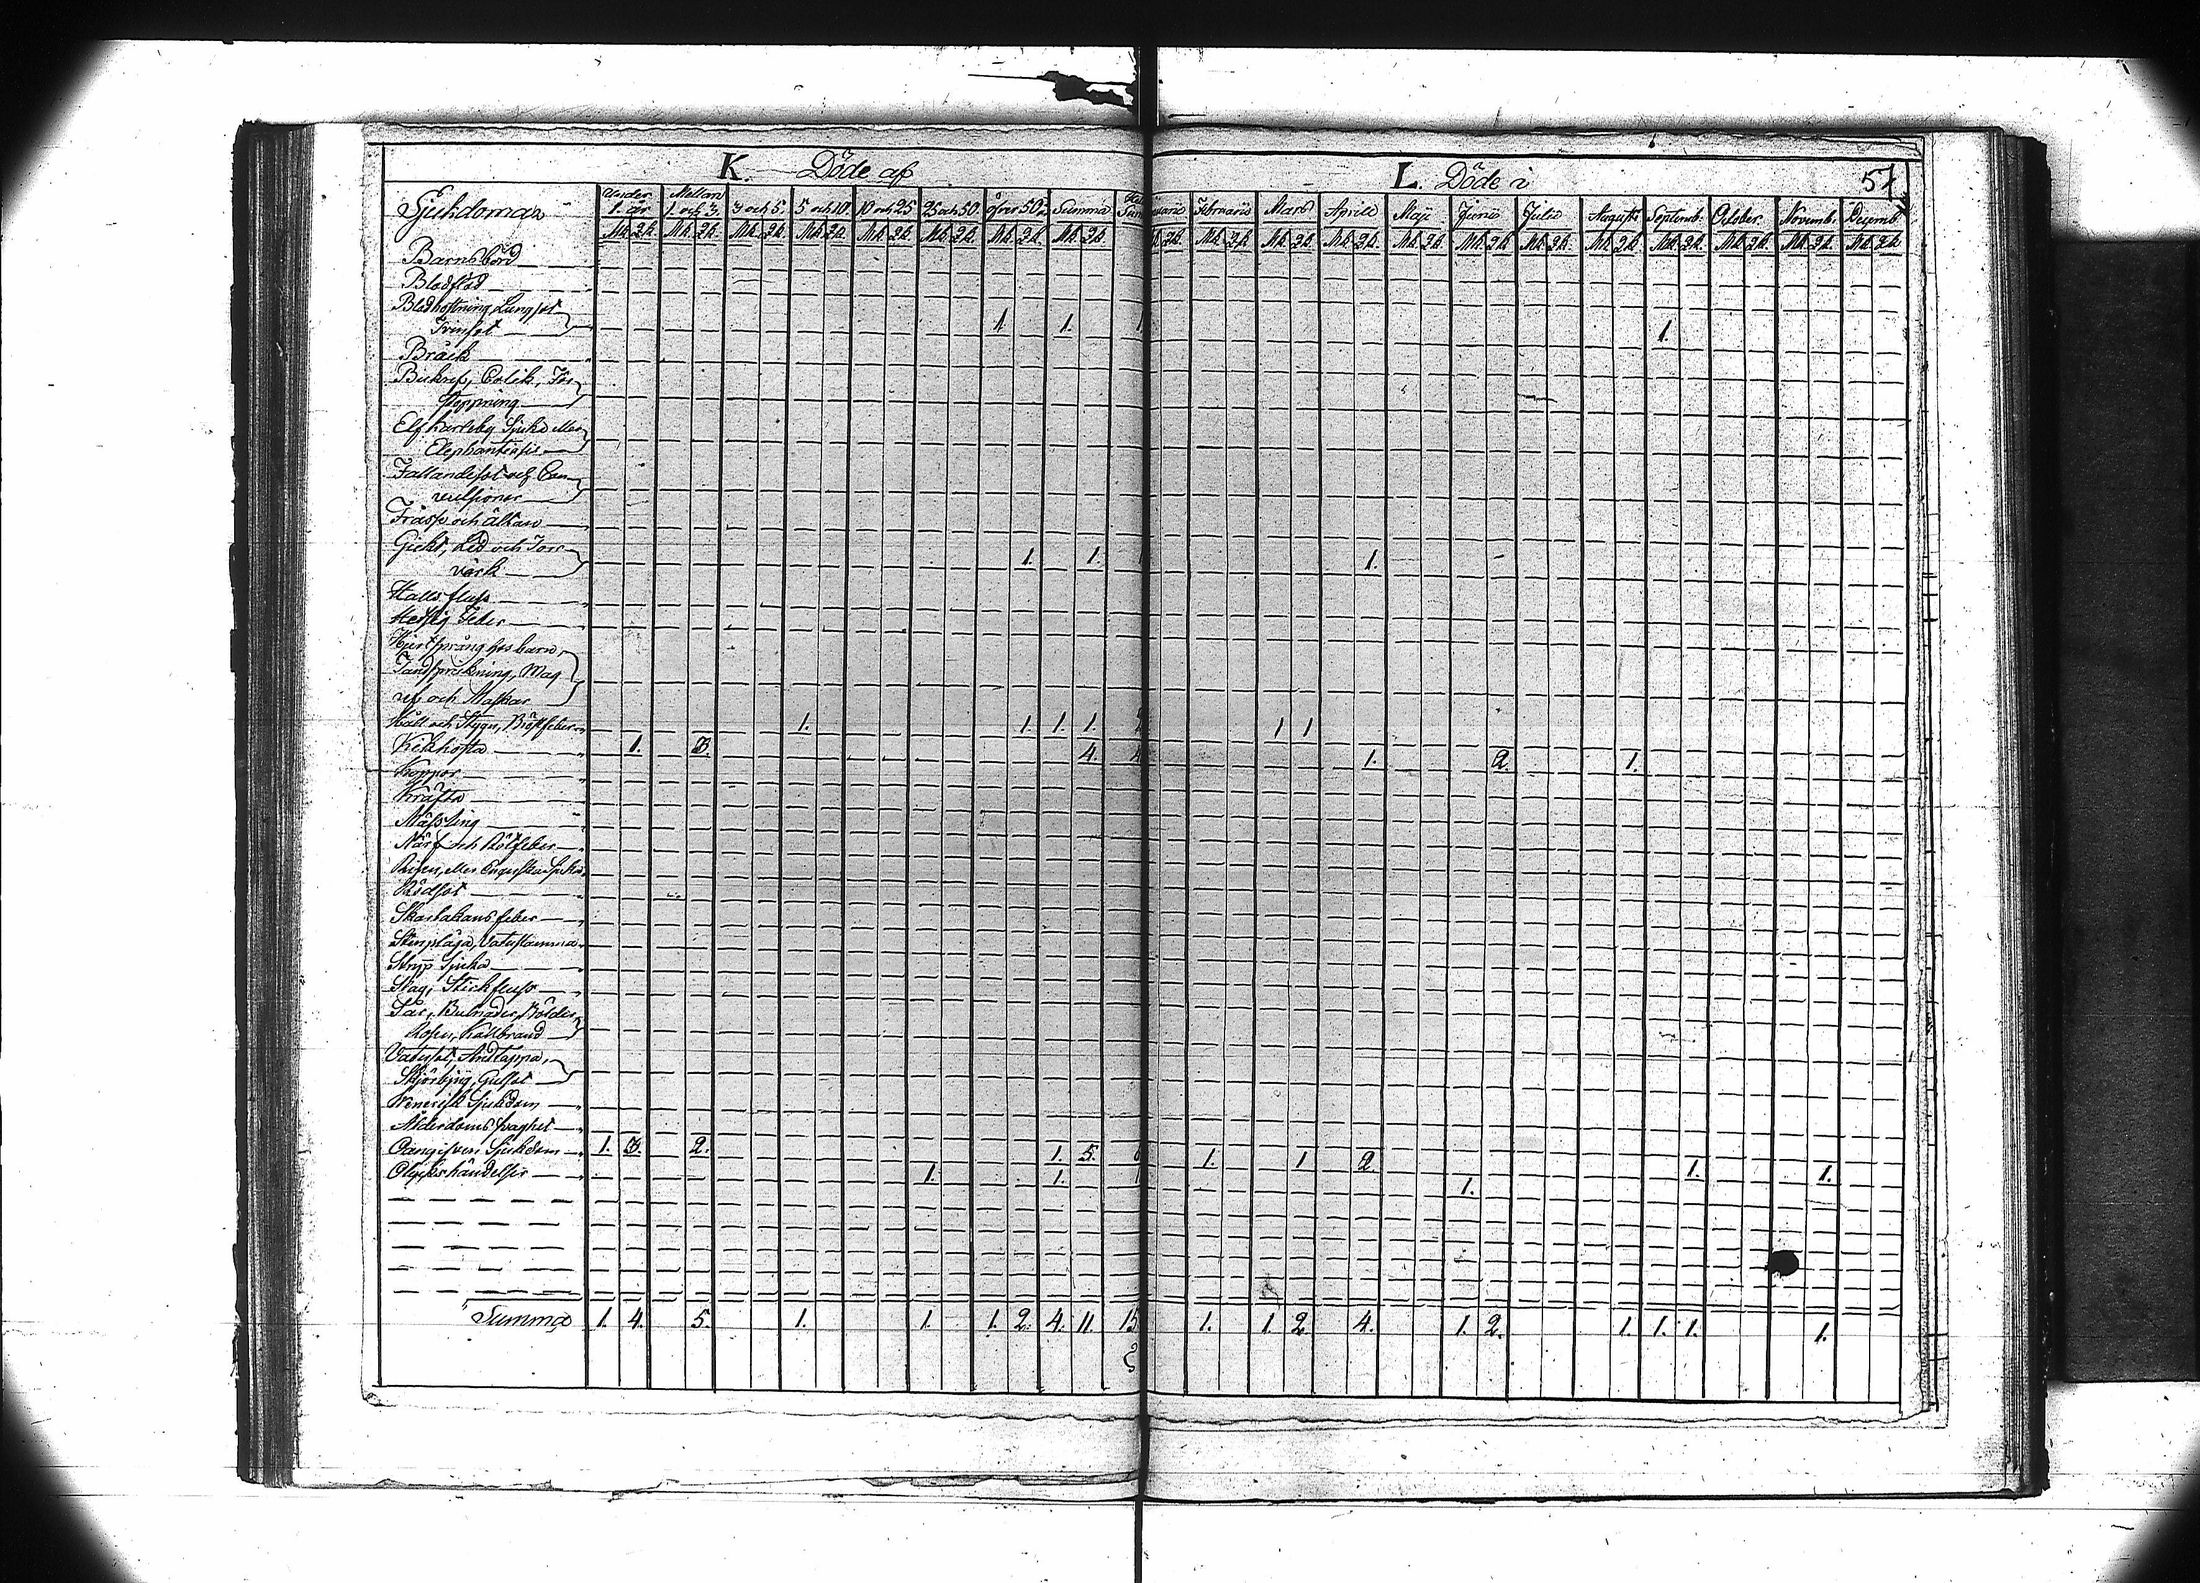 K. Döde af
L. Döde i 57
Sjukdomar Under 1. år Mellan 1. och 3. 3 och 5. 5 och 10 10 och 25 25 och 50. öfver 50 Summa Februarii Mars Aprill Maji Junii Julii Augusti Septemb. October Novemb. Decemb.
Mk. Qk. Mk. Qk. Mk. Qk. Mk. Qk. Mk. Qk. Mk. Qk. Mk. Qk. Mk. Qk. Qk. Mk. Qk. Mk. Qk. Mk. Qk. Mk. Qk. Mk. Qk. Mk. Qk. Mk. Qk. Mk. Qk. Mk. Qk. Mk. Qk. Mk. Qk.
Barnsbörd
Blodflöd
Blodhostning, Lungsot
Tvinsot 1. 1. 1 1.
Bråck
Bukref, Colik, För-
stoppning
Elfkarleby Sjuka eller
Elephantiasis
Fallandesot och Con-
vulsioner
Fråssa och Ältan
Gickt, Led och Torr-
värk 1. 1. 1.
Halls fluss
Hetsig Feber
Hjertsprång hos barn,
Tandsprickning, Mag
ref och Maskar
Håll och Stygn, Bröstfeber 1. 1. 1. 1. 1 1
Kikhosta 1. 3. 4. 4 1. 2. 1.
Koppor
Kräfta
Mässling
Närf och Rötfeber
Rödsot
Skarlakans feber
Stenplåga, Vatustämma
Stryp Sjuka
Slag, Stickfluss
Sår, Bulnader, Bölder,
Rosen, Kallbrand
Vatusot, Andtäppa,
Skjörbjug, Gulsot
Venerisk Sjukdom
Ålderdoms svaghet
Oangifven Sjukdom 1. 3. 2. 1. 5. 1. 1 2. 1. 1.
Olyckshändelser 1. 1. 1.
Summa 1. 4. 5. 1. 1. 1. 2. 4. 11. 15 1. 1. 2. 4. 1. 2. 1. 1. 1. 1.